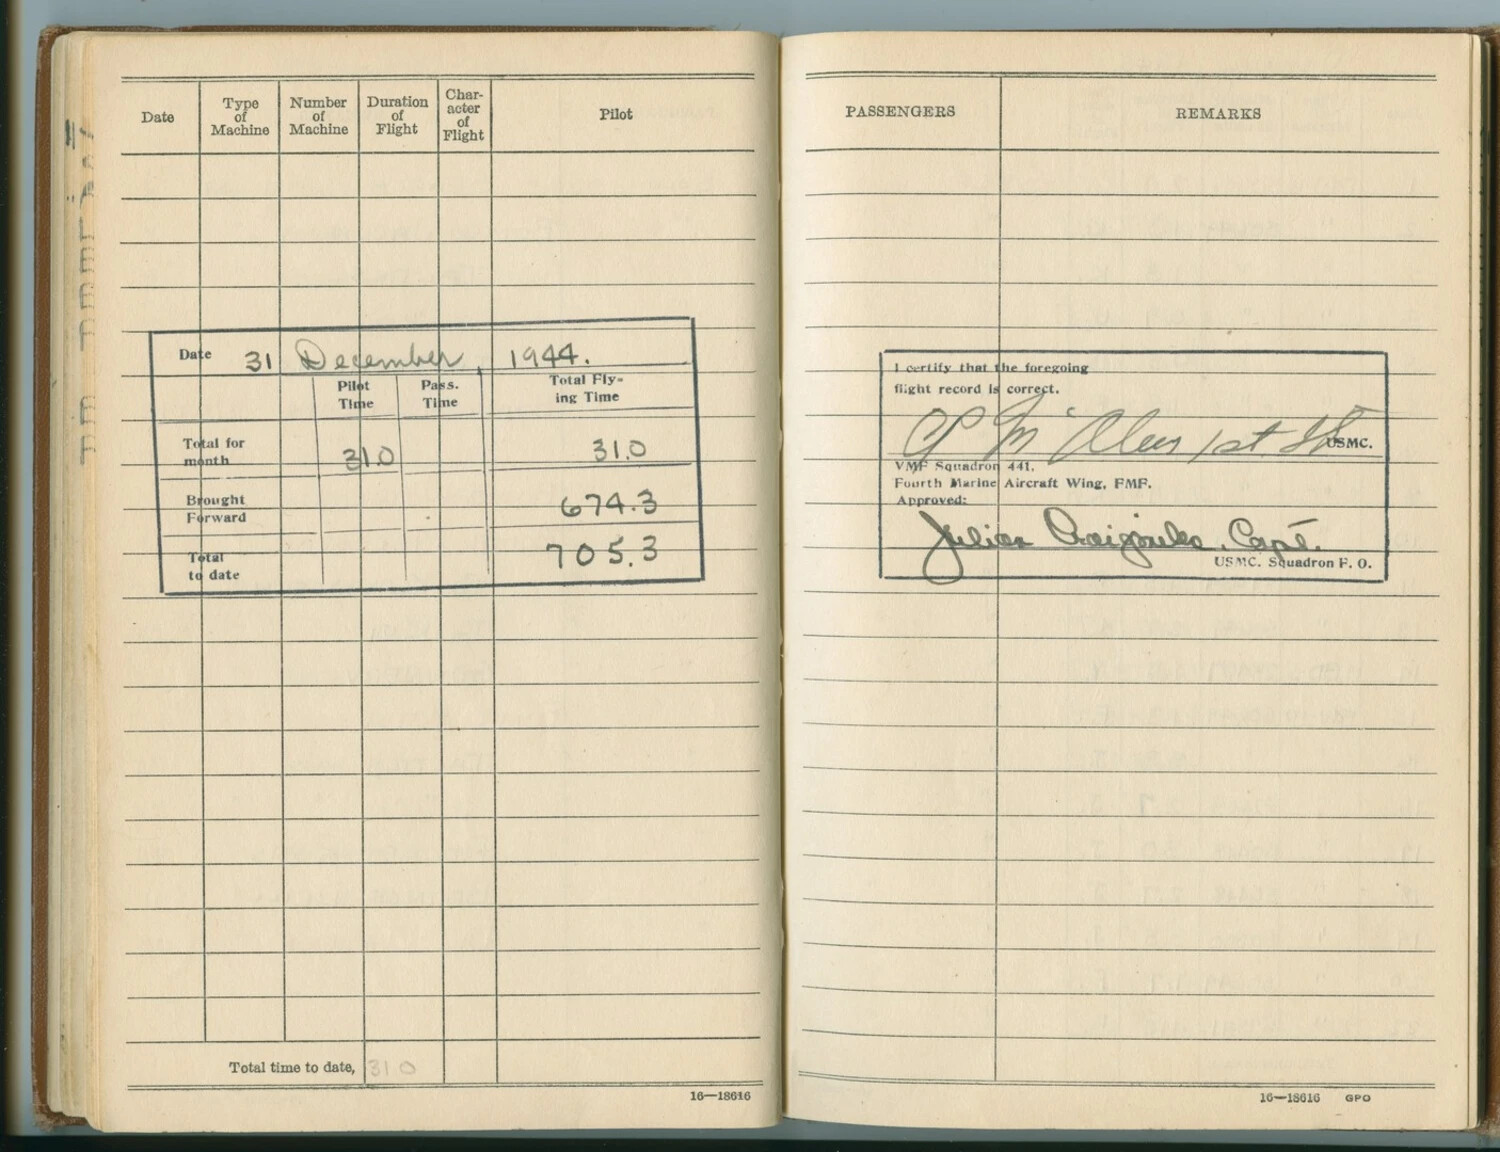 Date
Type of Machine
Number of Machine
Duration of Flight
Char-acter of Flight
Pilot
Date 31 December, 1944.
Pilot Time
Pass. Time
Total Fly-ing Time
Total for month 31.0 31.0
Brought Forward 674.3
Total to date 705.3
Total time to date, 31 0
16—18616
PASSENGERS
REMARKS
I certify that the foregoing
flight record is correct.
1st Lt USMC.
VMF Squadron 441,
Fourth Marine Aircraft Wing, FMF.
Approved:
Julian Capt.
USMC. Squadron F. O.
16—18616 GPO